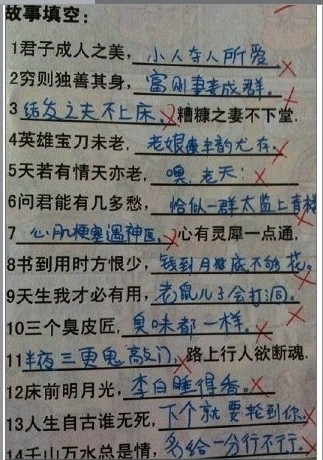 故事填空:
1君子成人之美,小人夺人所爱
2穷则独善其身,富则妻妾成群.
3结发之夫不上床,糟糠之妻不下堂.
4英雄宝刀未老,老娘丰韵尤存.
5天若有情天亦老,噢,老天!
6问君能有几多愁,恰似一群太监上青楼
7心肌梗塞遇神医,心有灵犀一点通,
8书到用时方恨少,钱到月底不够花.
9天生我才必有用,老鼠儿子会打洞.
10三个臭皮匠,臭味都一样.
11半夜三更鬼敲门,路上行人欲断魂.
12床前明月光,李白睡得香.
13人生自古谁无死,下个就要轮到你.
14千山万水总是情,多给一分行不行.